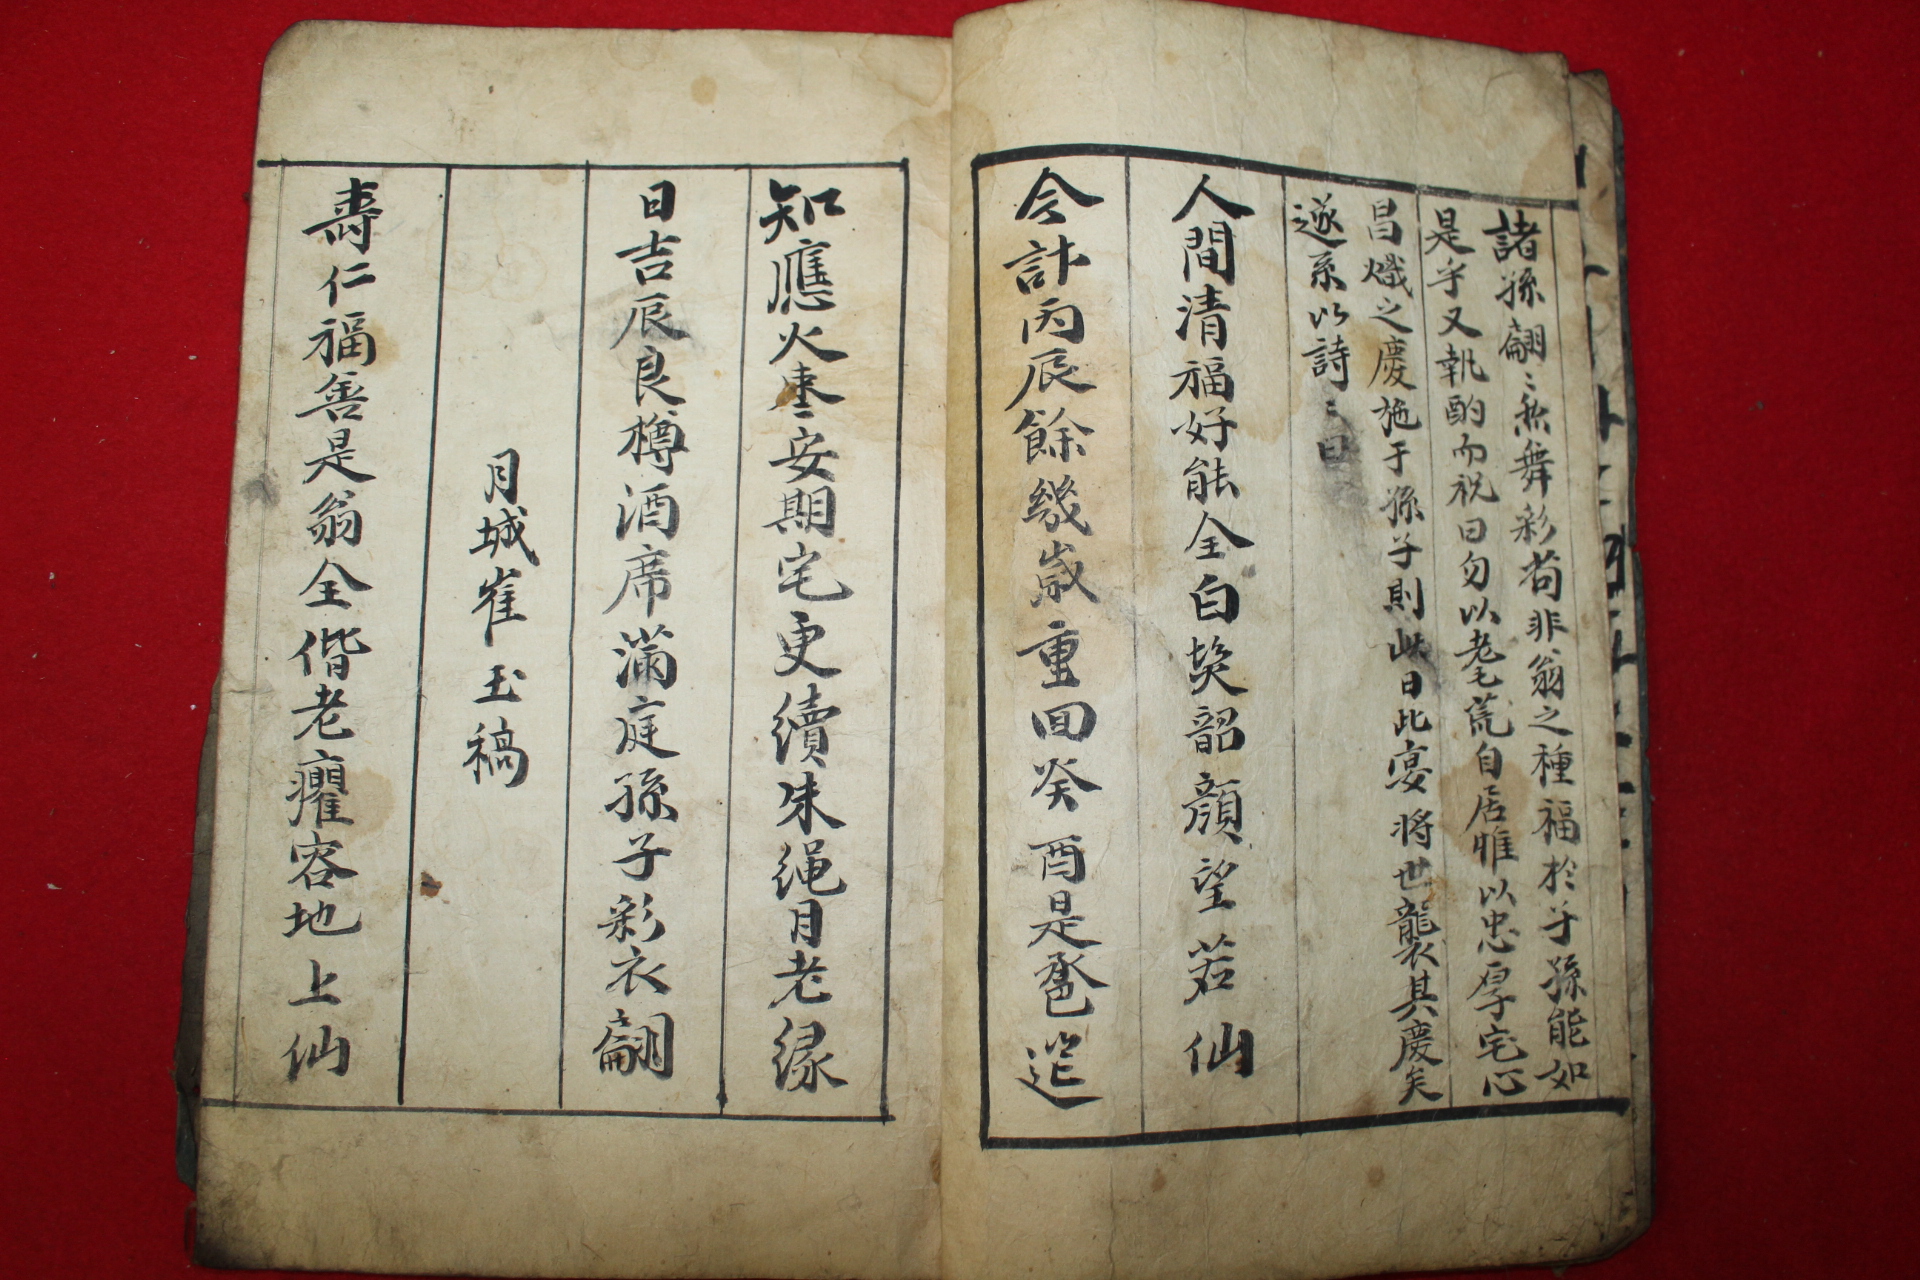 諸孫翩〻然舞彩苟非翁之種福於子孫能如
是乎又執酌而祝曰勿以老耄荒自居惟以忠厚宅心
昌熾之慶施于孫子則此日此宴將世襲其慶矣
遂系以詩〻曰
人間清福好能全白髮韶顔望若仙
今計丙辰餘幾歲重回癸酉是巹筵
知應火棗安期宅更續朱繩月老緣
日吉辰良樽酒席滿庭孫子彩衣翩
月城崔玉稿
壽仁福善是翁全偕老癯容地上仙